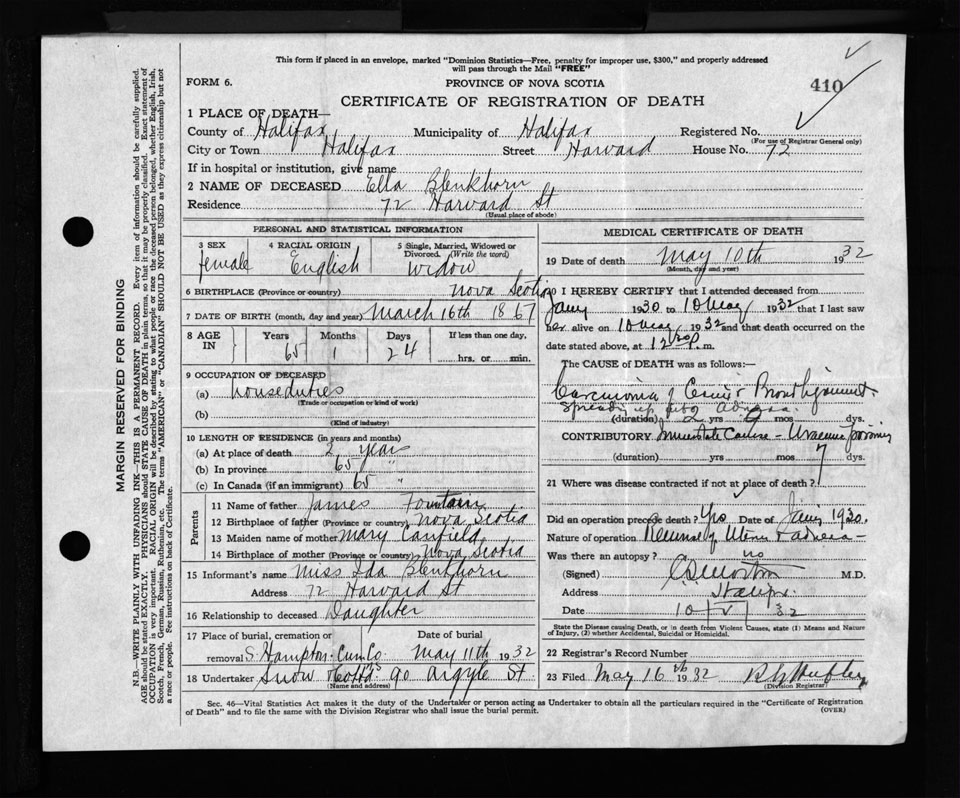 This form if placed in an envelope, marked "Dominion Statistics—Free, penalty for improper use, $300," and properly addressed
will pass through the Mail "FREE"
FORM 6. PROVINCE OF NOVA SCOTIA 410
CERTIFICATE OF REGISTRATION OF DEATH
1 PLACE OF DEATH—
County of Halifax Municipality of Halifax Registered No.
(For use of Registrar General only)
City or Town Halifax Street Harvard House No. 72
If in hospital or institution, give name
2 NAME OF DECEASED Ella Blenkhorn
Residence 72 Harvard St
(Usual place of abode)
PERSONAL AND STATISTICAL INFORMATION
3 SEX 4 RACIAL ORIGIN 5 Single, Married, Widowed or Divorced. (Write the word)
female English Widow
6 BIRTHPLACE (Province or country) Nova Scotia
7 DATE OF BIRTH (month, day and year) March 16th 1867
8 AGE IN Years Months Days If less than one day.
65 1 24 hrs. or min.
9 OCCUPATION OF DECEASED
(a) houseduties
(Trade or occupation or kind of work)
(b)
(Kind of industry)
10 LENGTH OF RESIDENCE (in years and months)
(a) At place of death 2 years
(b) In province 65 "
(c) In Canada (if an immigrant) 65 "
Parents
11 Name of father James Fountain
12 Birthplace of father (Province or country) Nova Scotia
13 Maiden name of mother Mary Canfield
14 Birthplace of mother (Province or country) Nova Scotia
15 Informant's name Miss Ida Blenkhorn
Address 72 Harvard St
16 Relationship to deceased Daughter
17 Place of burial, cremation or removal Date of burial
S. Hampton Cum Co. May 11th 1932
18 Undertaker Snow 90 Argyle St
(Name and address)
MEDICAL CERTIFICATE OF DEATH
19 Date of death May 10th 1932
(Month, day and year)
20 I HEREBY CERTIFY that I attended deceased from
Jany 1930 to 10 May 1932 that I last saw
her alive on 10 May 1932 and that death occurred on the
date stated above, at 12 30 P. m.
The CAUSE of DEATH was as follows:—
Carcinoma of Cervix Broad ligament
Spreading up into Adnexa.
(duration) 2 yrs mos dys.
CONTRIBUTORY Immediate Cause - Uraemic poisoning
(duration) yrs mos 7 dys.
21 Where was disease contracted if not at place of death?
Did an operation precede death? Yes Date of Jany 1930.
Nature of operation Removal of Uterus & adnexa -
Was there an autopsy? no
(Signed) M.D.
Address Halifax
Date 10 V 32
State the Disease causing Death, or in death from Violent Causes, state (1) Means and Nature
of Injury, (2) whether Accidental, Suicidal or Homicidal.
22 Registrar's Record Number
23 Filed May 16th 1932
(Division Registrar)
Sec. 46—Vital Statistics Act makes it the duty of the Undertaker or person acting as Undertaker to obtain all the particulars required in the "Certificate of Registration
of Death" and to file the same with the Division Registrar who shall issue the burial permit. (OVER)
MARGIN RESERVED FOR BINDING
N.B.—WRITE PLAINLY WITH UNFADING INK—THIS IS A PERMANENT RECORD. Every item of information should be carefully supplied.
AGE should be stated EXACTLY. PHYSICIANS should STATE CAUSE OF DEATH in plain terms, so that it may be properly classified. Exact statement of
OCCUPATION is very important. RACIAL ORIGIN will be described by stating to what people or race the deceased person belonged, whether English, Irish,
Scotch, French, German, Russian, Ruthenian, etc. The terms "AMERICAN" or "CANADIAN" SHOULD NOT BE USED as they express citizenship but not
a race or people. See instructions on back of Certificate.